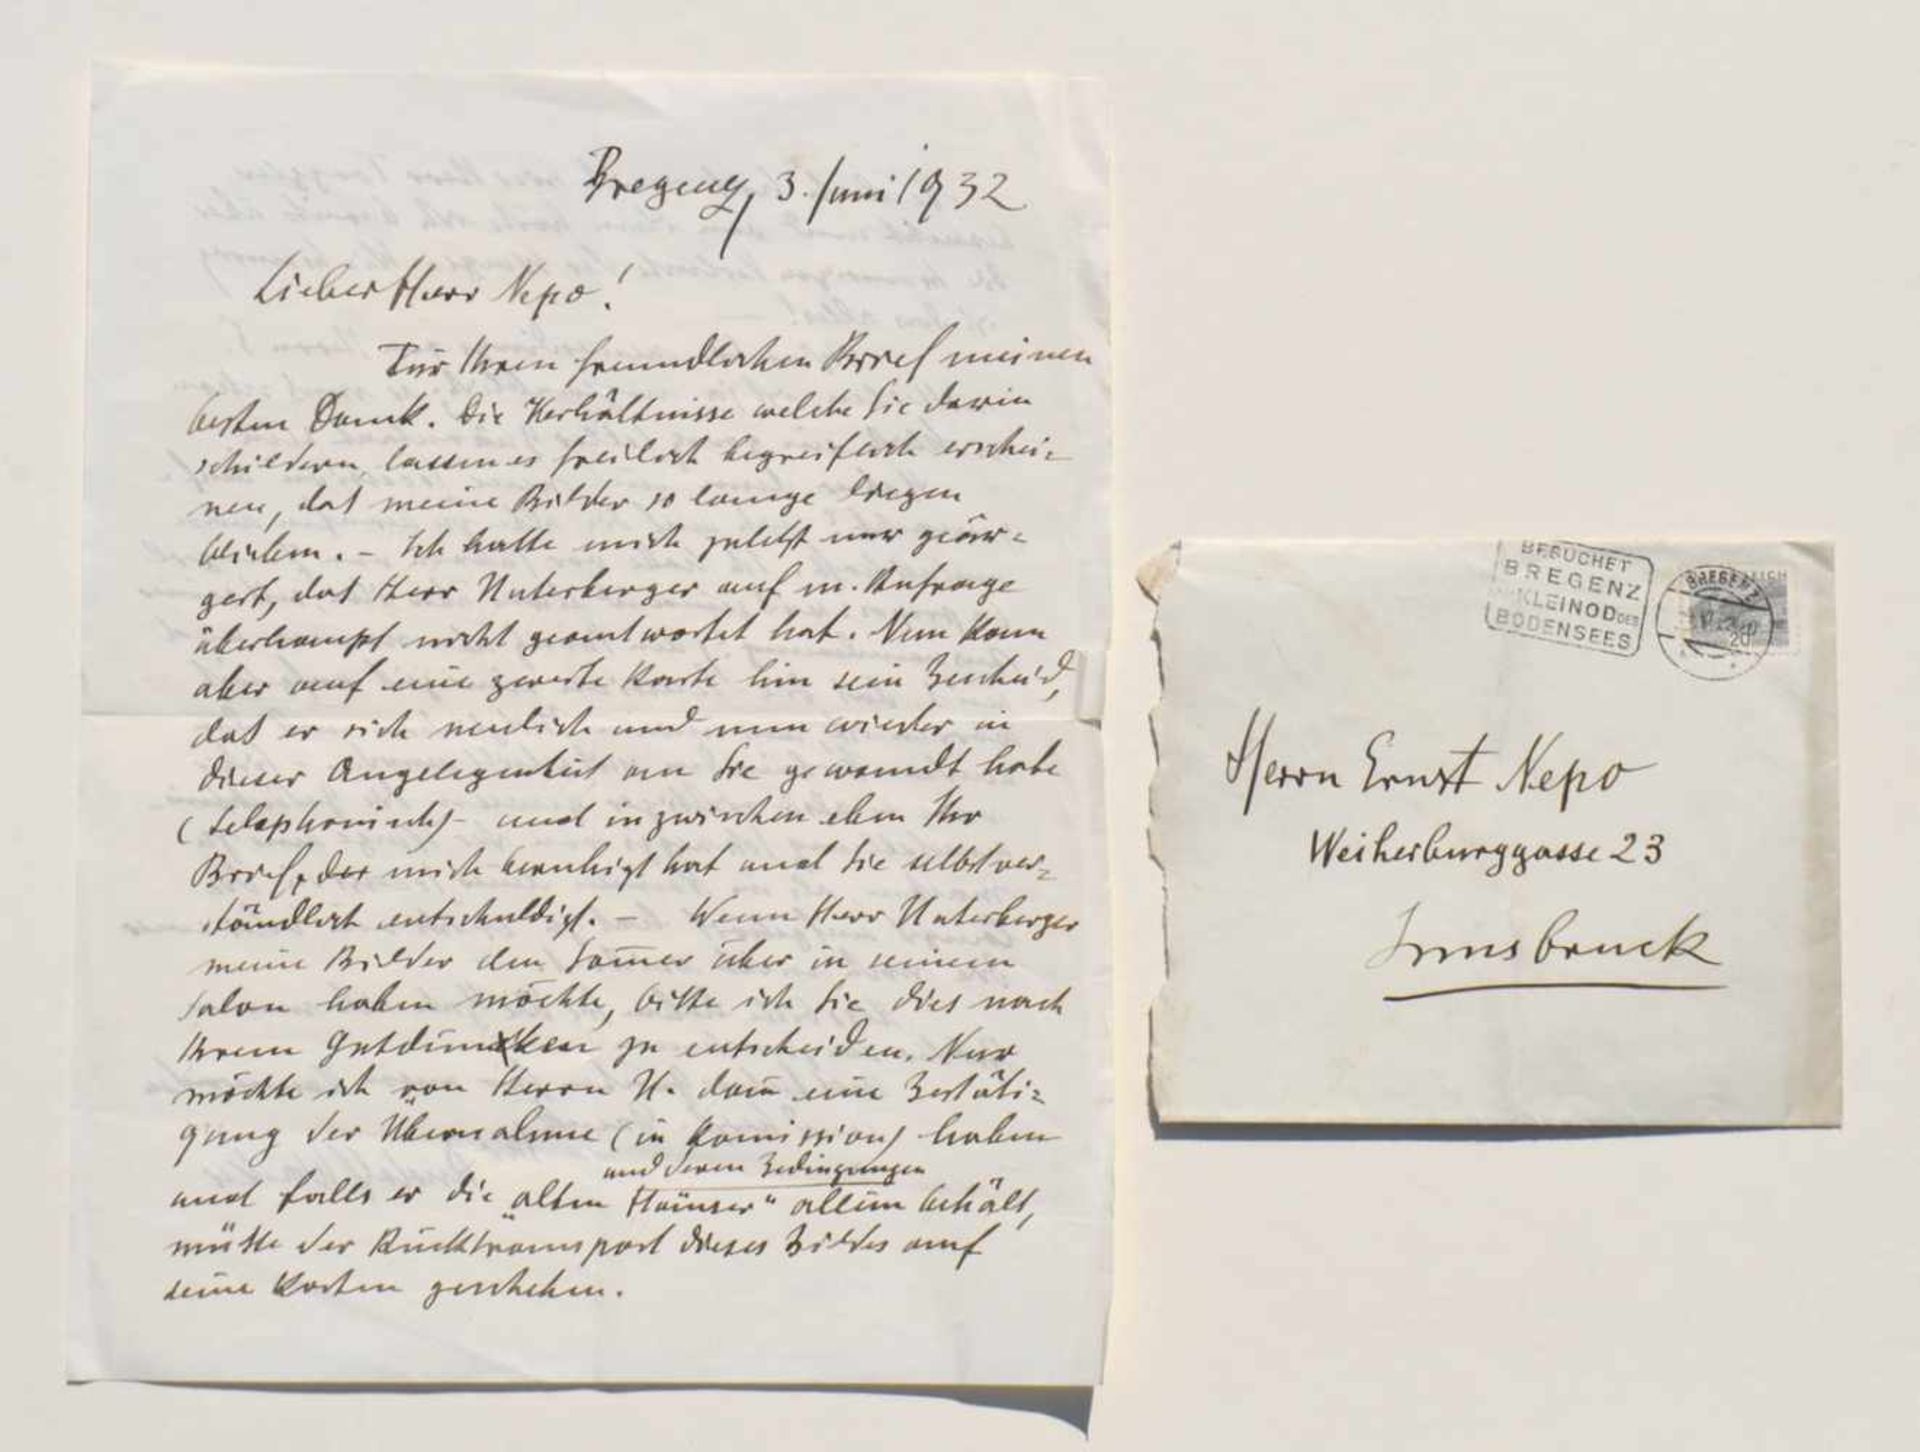 Bregenz, 3. Juni 1932
Lieber Herr Nepo!
Für Ihren freundlichen Brief meinen
besten Dank. Die Verhältnisse welche Sie darin
schildern, lassen es freilich begreiflich erschei=
nen, daß meine Bilder so lange liegen
blieben. – Ich hatte mich zuletzt nur geär=
gert, daß Herr Unterberger auf m. Anfrage
überhaupt nicht geantwortet hat. Nun kam
aber auf eine zweite Karte hin sein Bescheid,
daß er sich neulich und nun wieder in
dieser Angelegenheit an Sie gewandt habe
(telephonisch) – und inzwischen eben Ihr
Brief, der mich beruhigt hat und Sie selbstver=
ständlich entschuldigt. – Wenn Herr Unterberger
meine Bilder den Som̅er über in seinem
Salon haben möchte, bitte ich Sie dies nach
Ihrem Gutdünken zu entscheiden. Nur
möchte ich von Herrn U. dan̅ eine Bestäti=
gung der Übernahme (in Kom̅ission) haben
und deren Bedingungen
und falls er die „alten Häuser" allein behält,
müßte der Rücktransport dieses Bildes auf
seine Kosten geschehen.
BESUCHET
BREGENZ
KLEINOD DES
BODENSEES
BREGENZ
Herrn Ernst Nepo
Weiherburggasse 23
Innsbruck